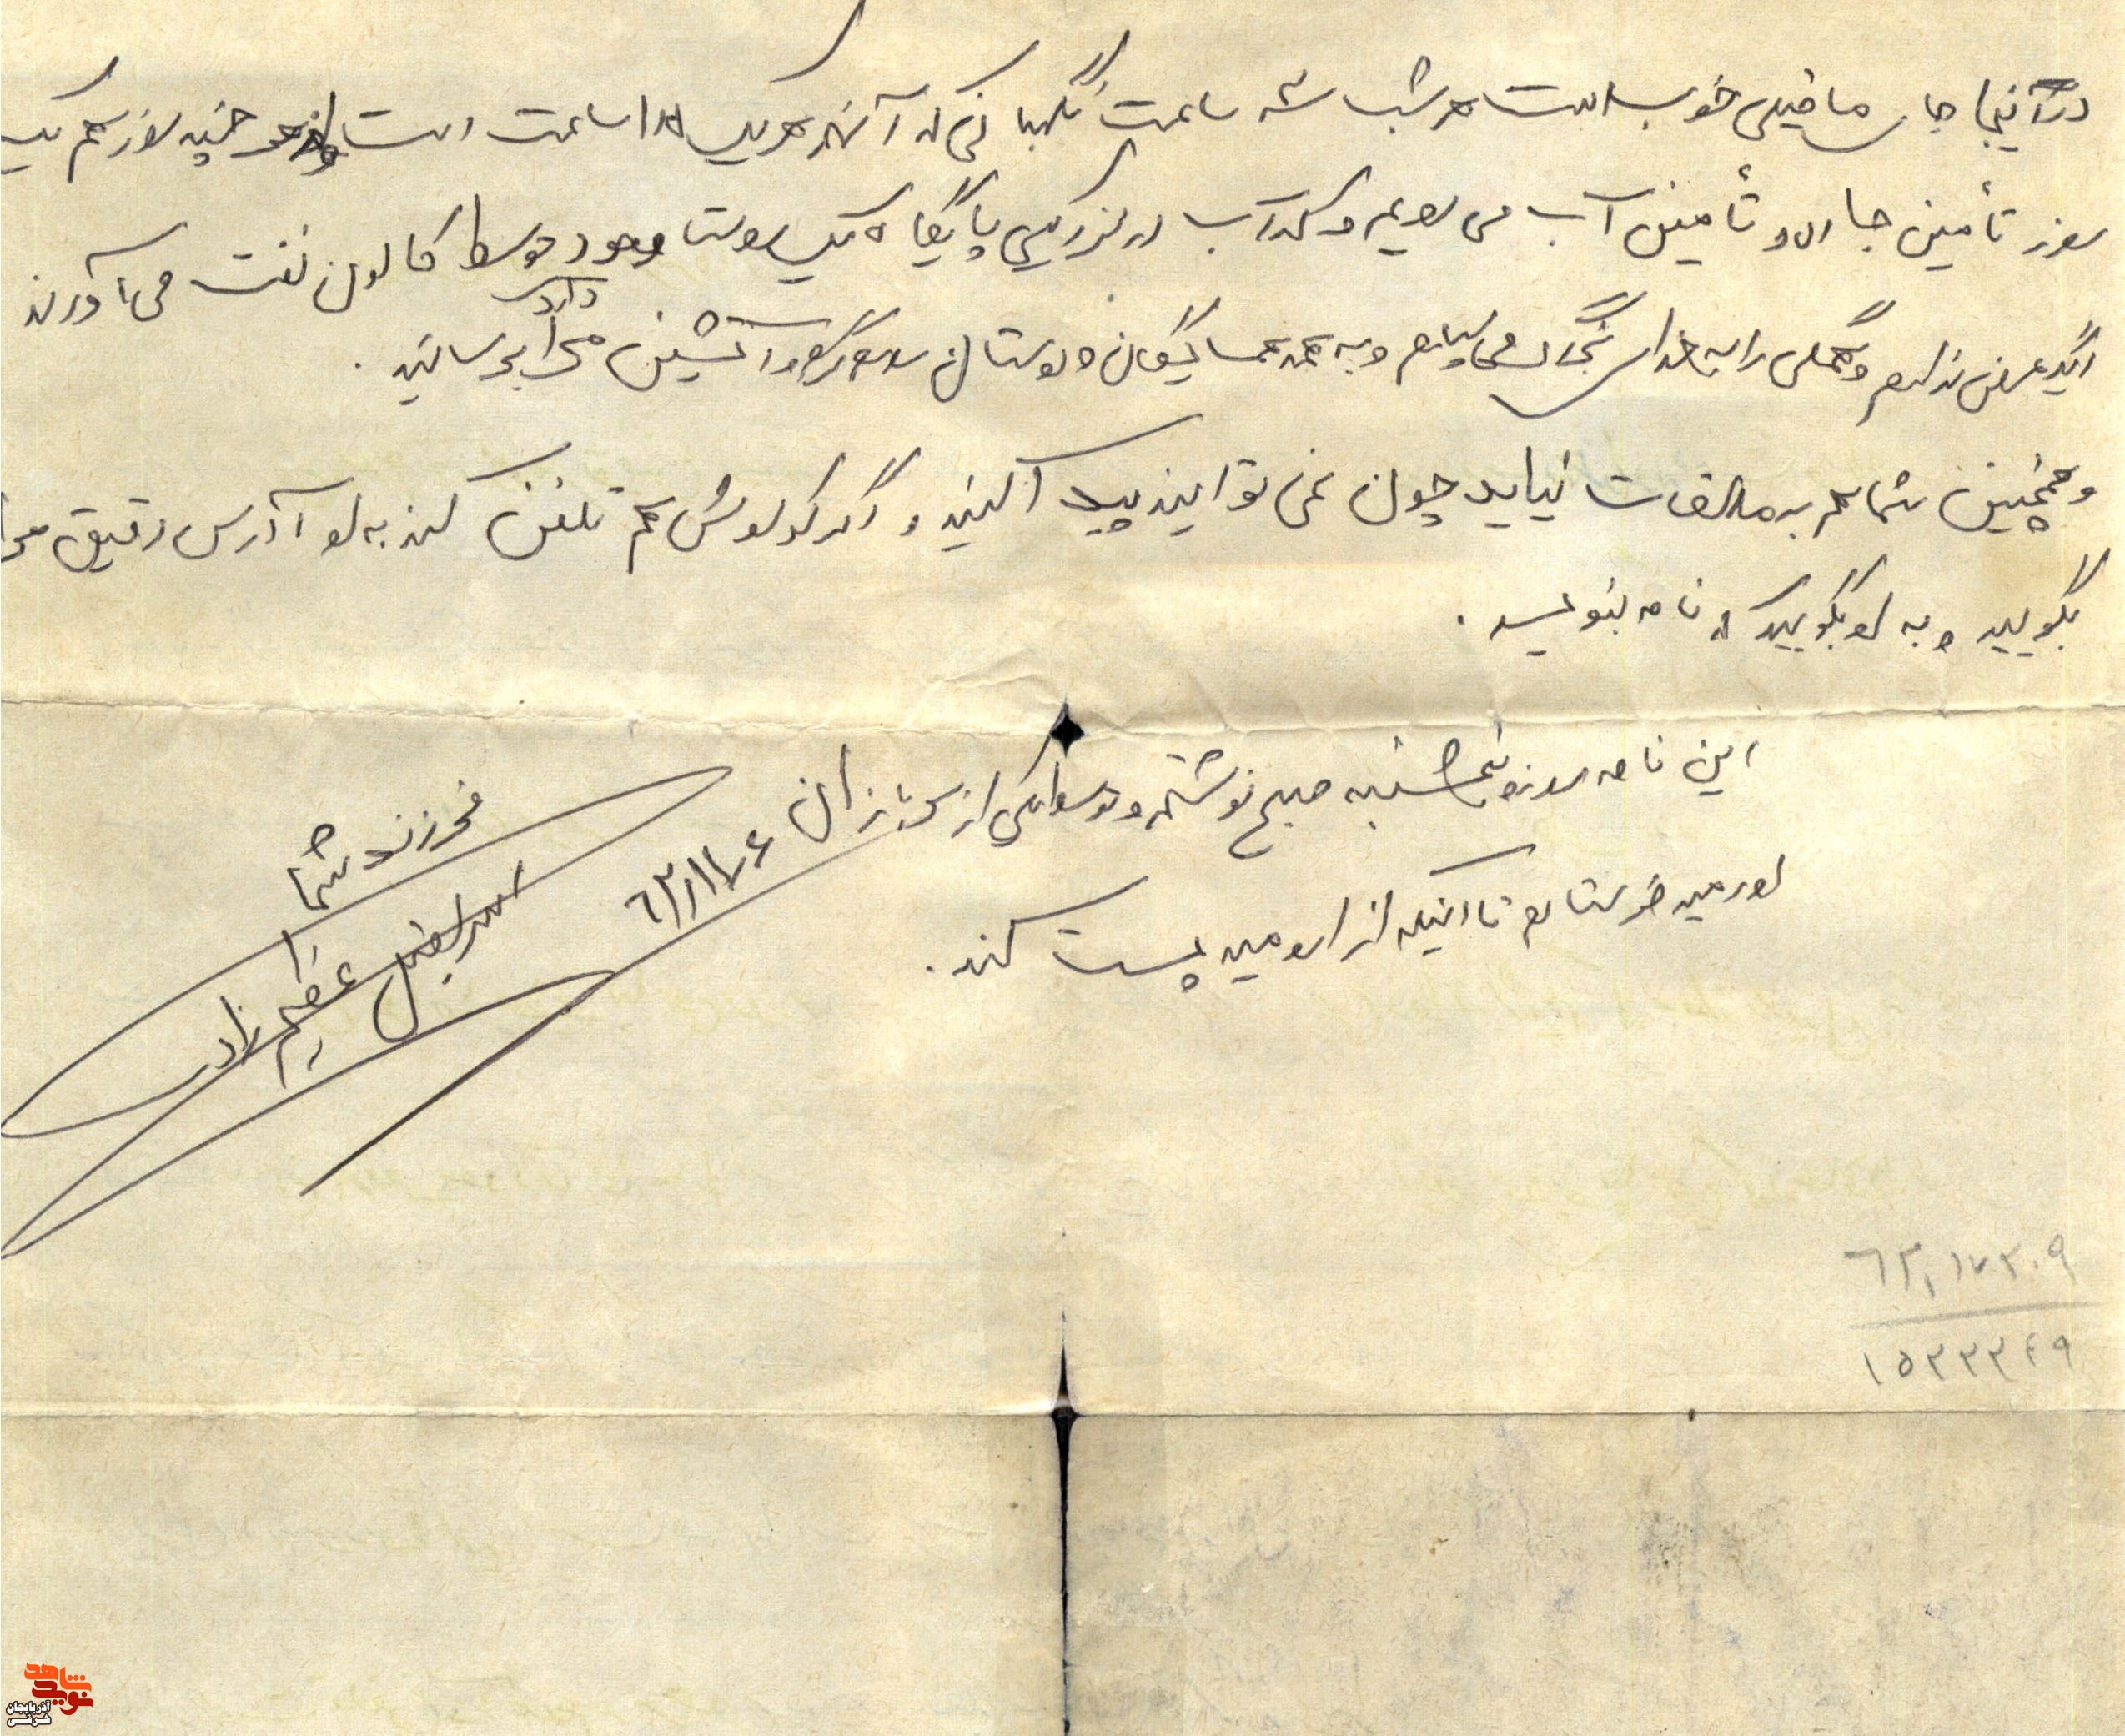 در آنجا جای ما خیلی خوب است هر شب سه ساعت نگهبانی که آنهم هر یک ساعت است و هر چند روز هم یک
روز تأمین جاده و تأمین آب می رویم و کمد آب در نزدیکی پایگاه یک روستا وجود دارد توسط کالون نفت می آورند
دیگر عرضی ندارم و همگی را به خدای بزرگ می سپارم و به همه همسایگان و دوستان سلام گرم و آتشین مرا برسانید.
و همچنین شما هم به ملاقات نیایید چون نمی توانید پیدا کنید و اگر کوروش هم تلفن کند به او آدرس دقیق مرا
بگویید و به او بگویید که نامه بنویسد.
این نامه روز پنجشنبه صبح نوشتم و توسط یکی از سربازان
اورمیه فرستادم تا اینکه از ارومیه پست کند.
۶۳/۱۱/۲۶
فرزند شما
اسرافیل عظیم زاده
۶۳,۱۷۳۰۹
۱۵۳۳۳۴۹
نوید شاهد
آذربایجان شرقی